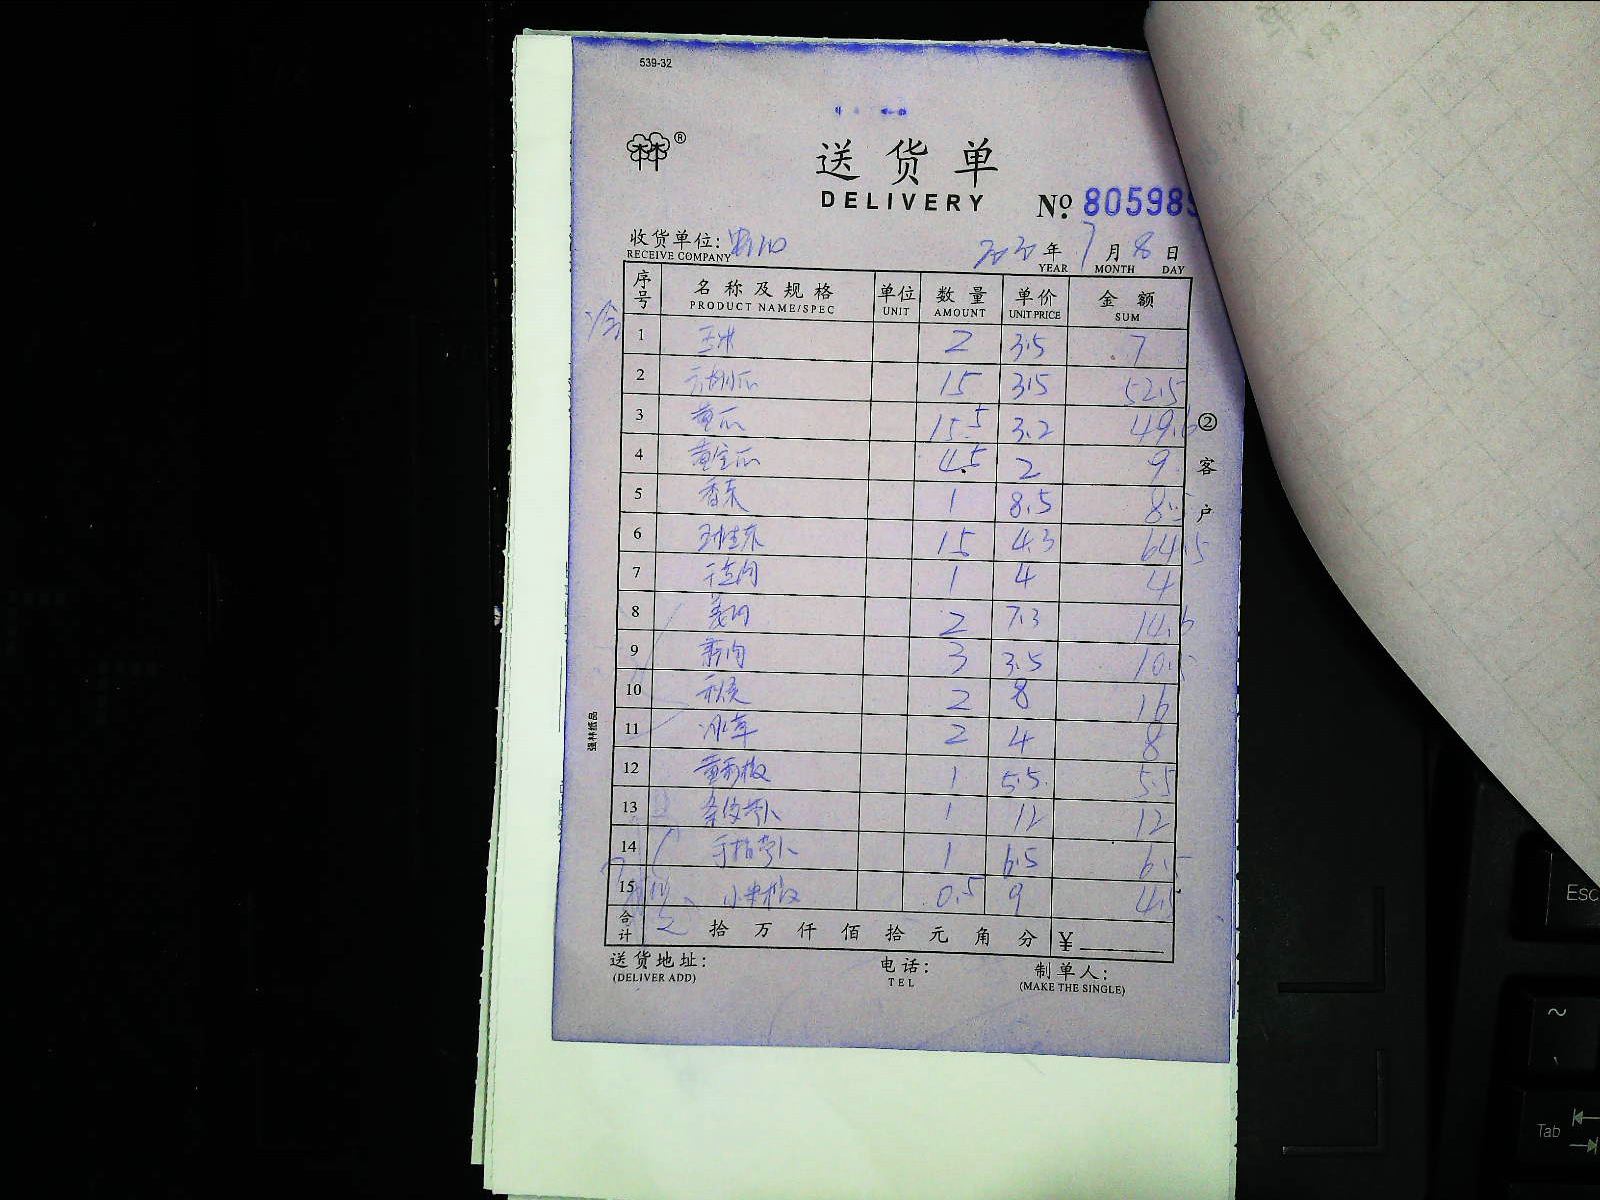 539-32
林®
送货单
DELIVERY № 80598
收货单位:
RECEIVE COMPANY
年 7 月 8 日
YEAR MONTH DAY
序号 名称及规格 单位 数量 单价 金额
PRODUCT NAME/SPEC UNIT AMOUNT UNIT PRICE SUM
1 玉米 2 3.5 7
2 15 3.5 52.5
3 黄瓜 15.5 3.2 49.6
4 黄金瓜 4.5 2 9
5 香菜 1 8.5 8.5
6 15 4.3 64.5
7 1 4 4
8 2 7.3 14.6
9 3 3.5 10.5
10 秋葵 2 8 16
11 冰草 2 4 8
12 黄彩椒 1 5.5 5.5
13 1 12 12
14 手指萝卜 1 6.5 6.5
15 小米椒 0.5 9 4.5
合计 拾 万 仟 佰 拾 元 角 分 ¥
送货地址: 电话: 制单人:
(DELIVER ADD) TEL (MAKE THE SINGLE)
②客户
强林纸品
Esc
~
Tab